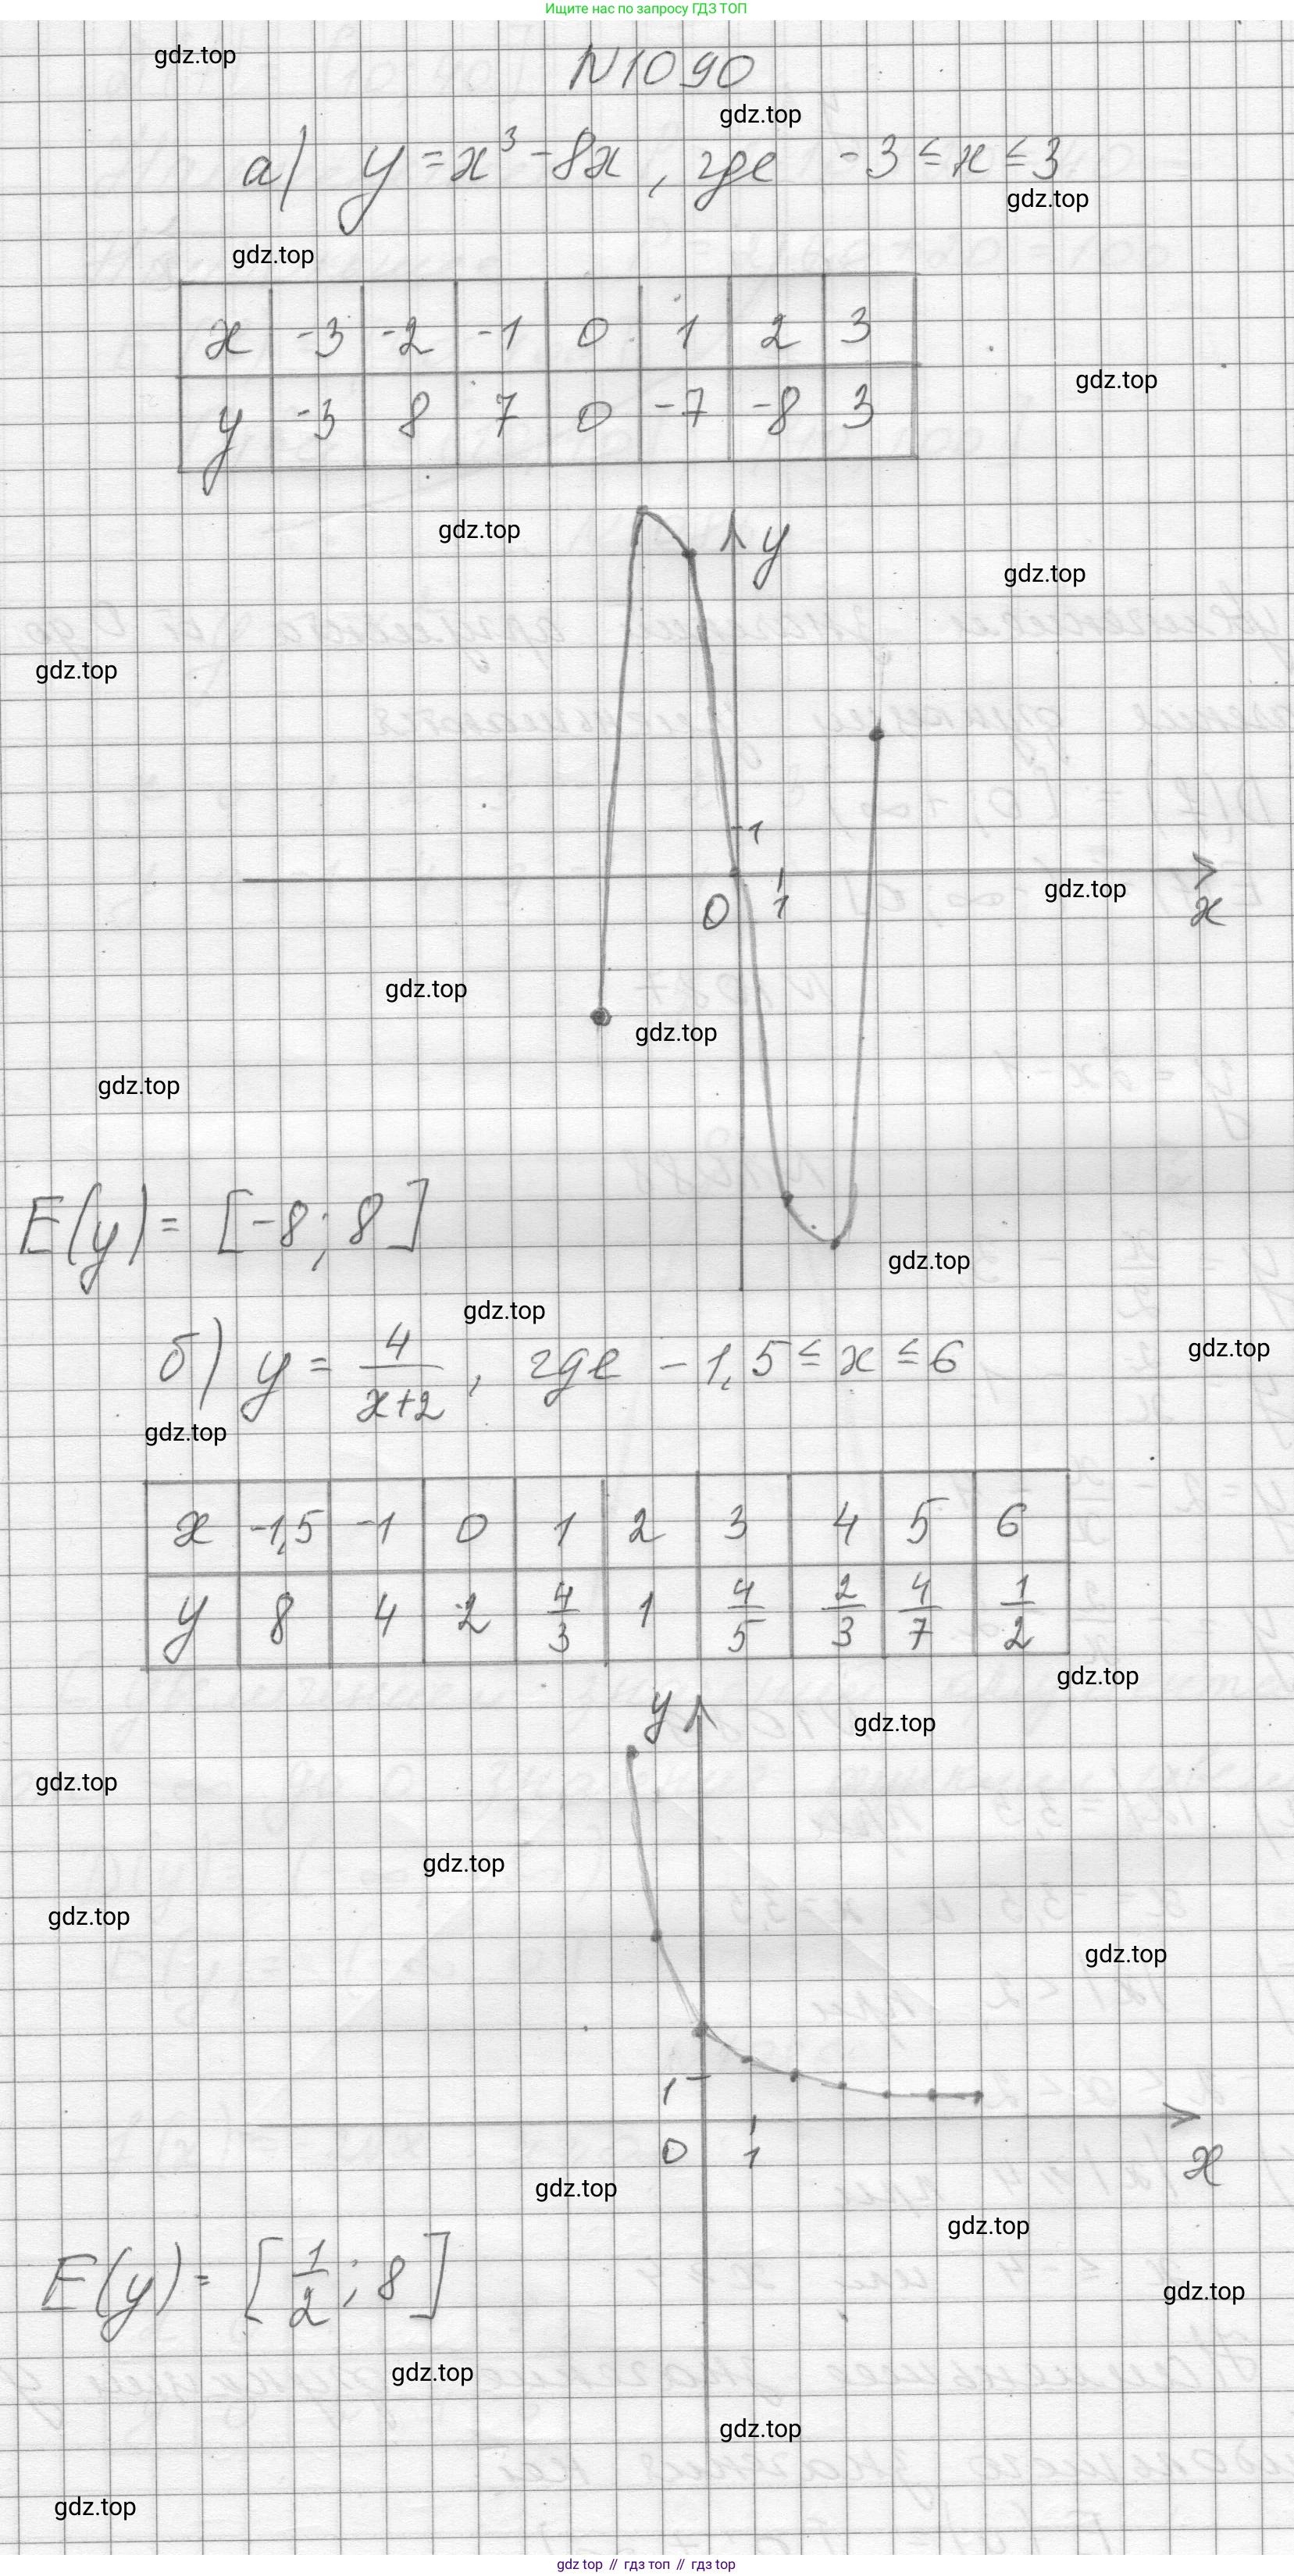 Ищите нас по запросу ГДЗ ТОП
gdz.top
N1090
gdz.top
а) y = x³ - 8x, где -3 ≤ x ≤ 3
gdz.top
gdz.top
x -3 -2 -1 0 1 2 3
gdz.top
y -3 8 7 0 -7 -8 3
gdz.top
y
gdz.top
gdz.top
1
gdz.top
0 1 x
gdz.top
gdz.top
gdz.top
E(y) = [-8; 8]
gdz.top
gdz.top
б) y = 4/(x+2), где -1,5 ≤ x ≤ 6
gdz.top
gdz.top
x -1,5 -1 0 1 2 3 4 5 6
y 8 4 2 4/3 1 4/5 2/3 4/7 1/2
gdz.top
y
gdz.top
gdz.top
gdz.top
gdz.top
gdz.top
1
0 1 x
gdz.top
gdz.top
E(y) = [1/2; 8]
gdz.top
gdz.top
gdz.top
gdz.top
gdz top // гдз топ // gdz top